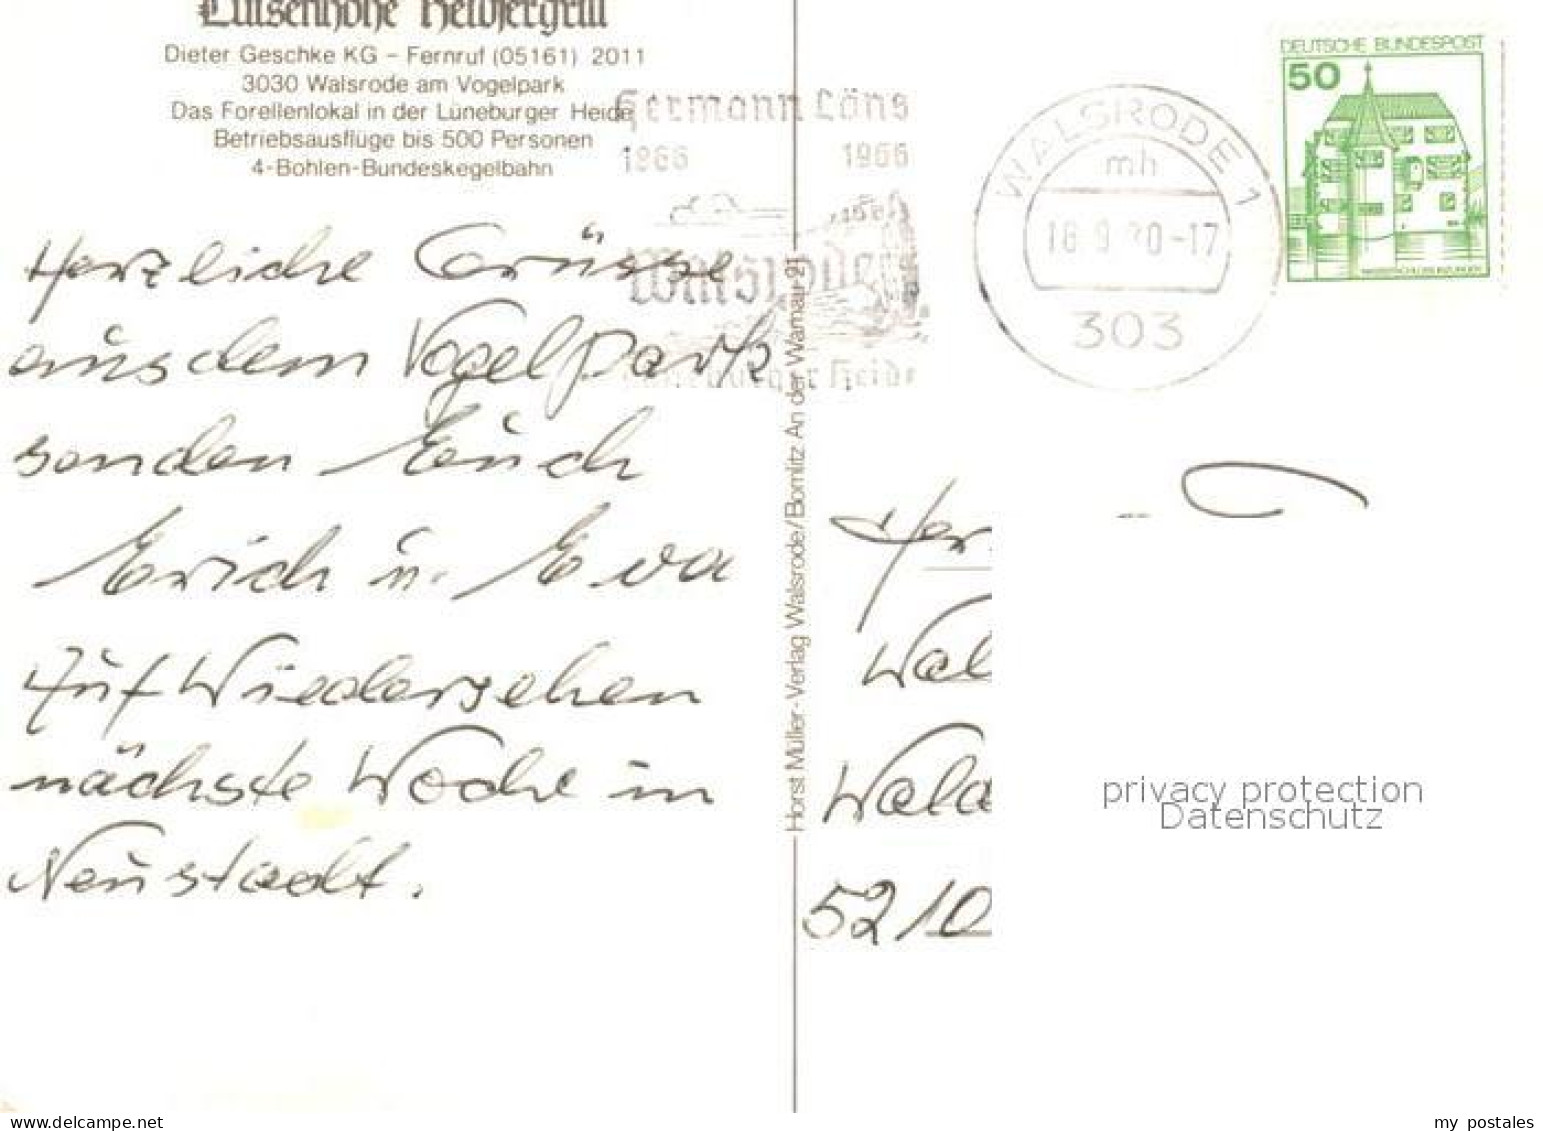 Luisenhöhe Heidjergrill
Dieter Geschke KG – Fernruf (05161) 2011
3030 Walsrode am Vogelpark
Das Forellenlokal in der Lüneburger Heide
Betriebsausflüge bis 500 Personen
4-Bohlen-Bundeskegelbahn
Hermann Löns
1866 1966
Walsrode
Lüneburger Heide
WALSRODE 1
mh
-17
303
DEUTSCHE BUNDESPOST
50
Herzliche Grüsse
aus dem Vogelpark
senden Euch
Erich u. Eva
Auf Wiedersehen
nächste Woche in
Neustadt.
Horst Müller-Verlag Walsrode/Bomlitz An der Warnau 21
Wal
Wald
5210
privacy protection
Datenschutz
my_postales.com
my_postales